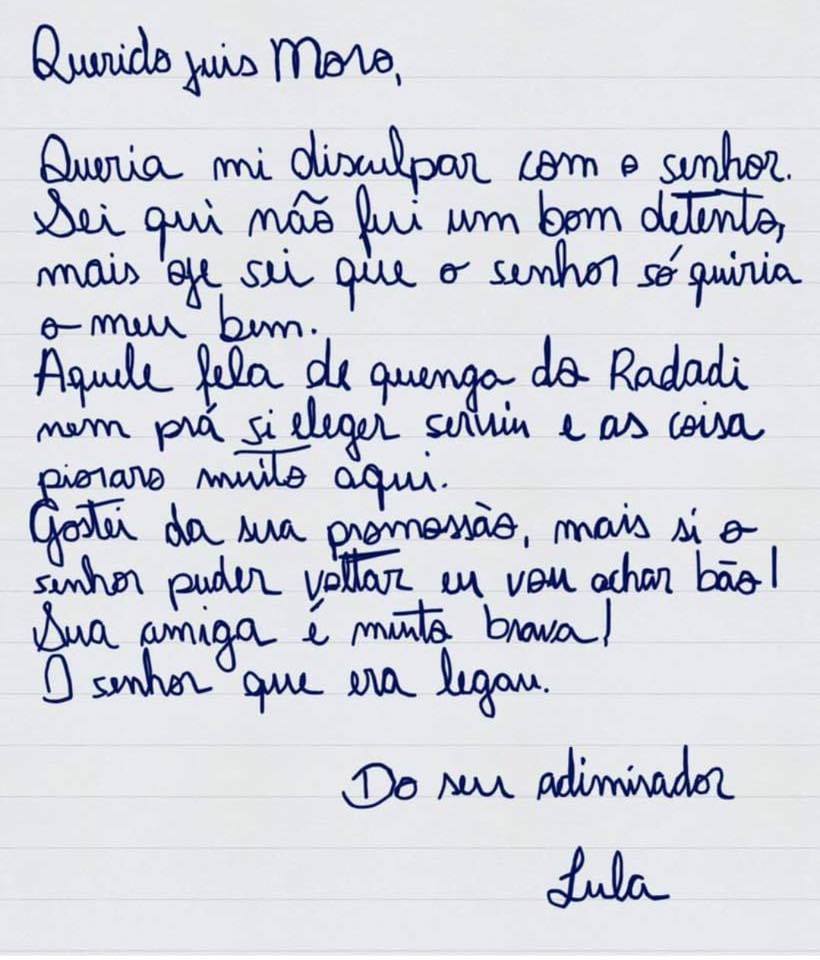 Querido juis Moro,
Queria mi disculpar com o senhor.
Sei qui não fui um bom detento,
mais oje sei que o senhor só quiria
o meu bem.
Aquele fela de quenga do Radadi
nem prá si eleger serviu e as coisa
pioraro muito aqui.
Gostei da sua promossão, mais si o
senhor puder voltar eu vou achar bão!
Sua amiga é muito brava!
O senhor que era legau.
Do seu adimirador
Lula